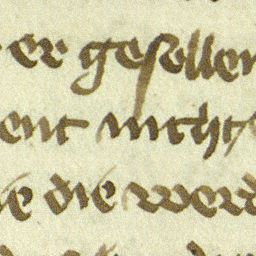 er gesollen
ent nicht
die werd